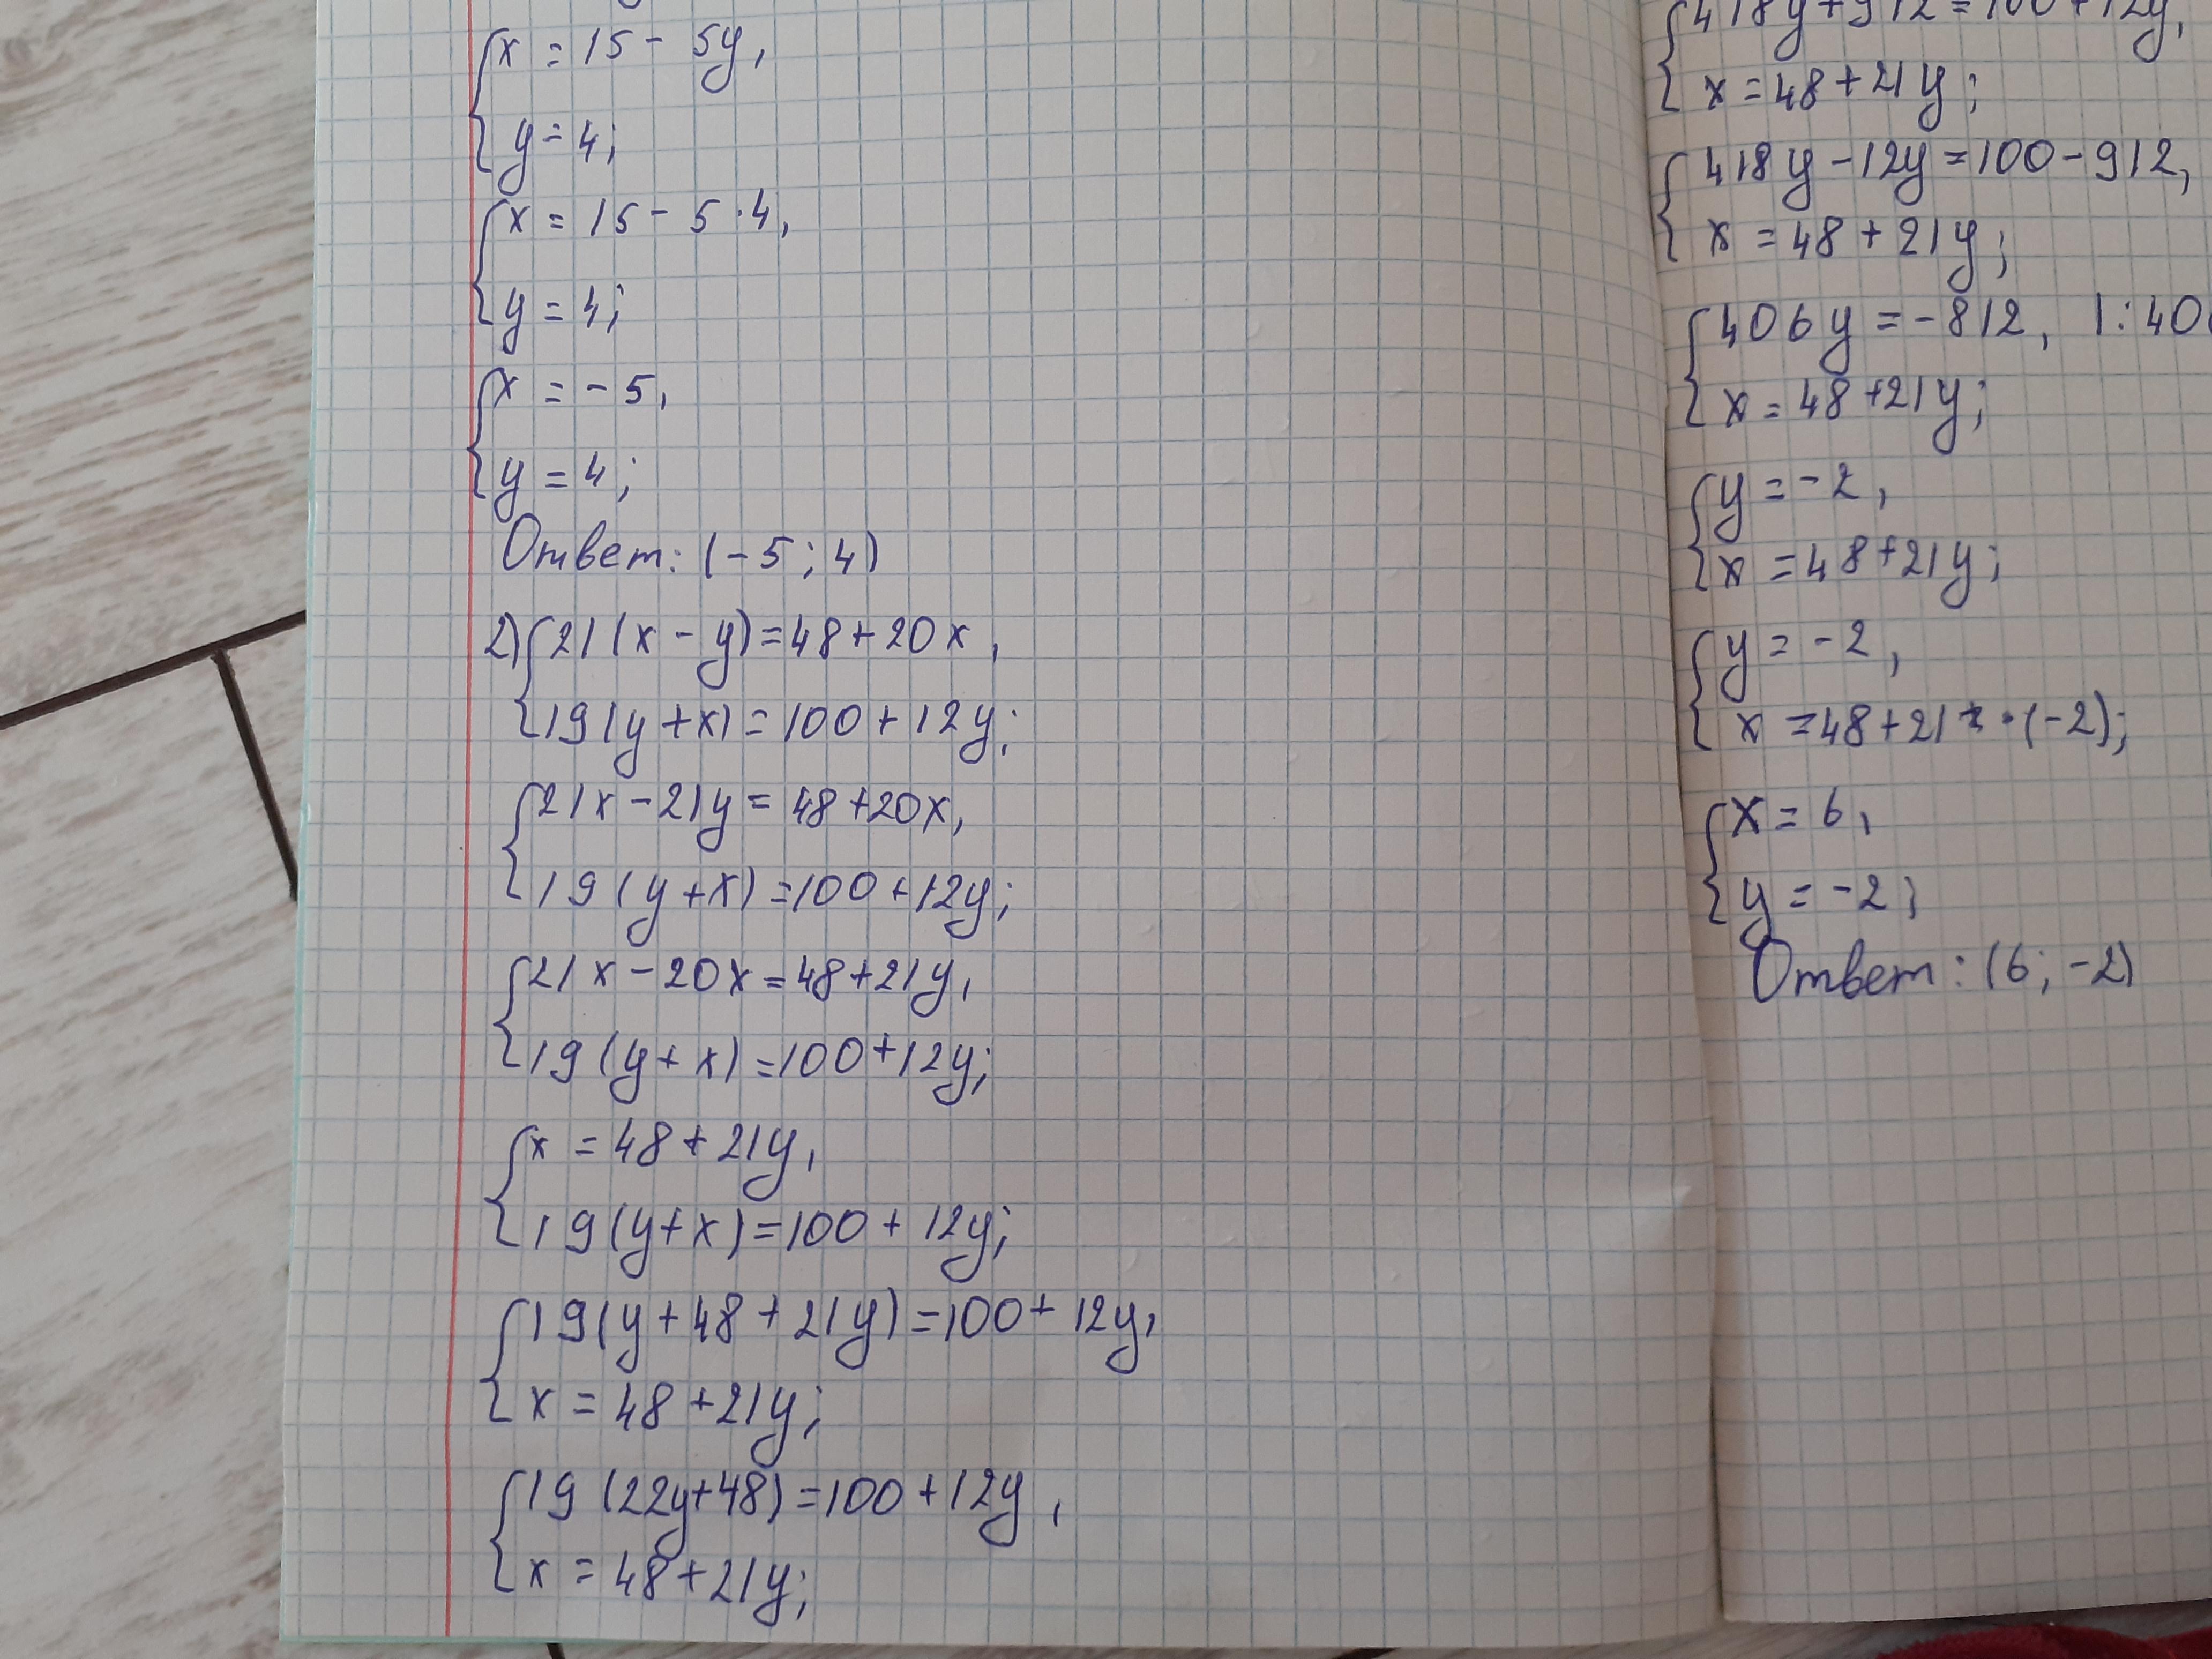 x = 15 - 5y,
y = 4;
x = 15 - 5 · 4,
y = 4;
x = - 5,
y = 4;
Ответ: (-5; 4)
2) 21(x - y) = 48 + 20x,
19(y + x) = 100 + 12y;
21x - 21y = 48 + 20x,
19(y + x) = 100 + 12y;
21x - 20x = 48 + 21y,
19(y + x) = 100 + 12y;
x = 48 + 21y,
19(y + x) = 100 + 12y;
19(y + 48 + 21y) = 100 + 12y,
x = 48 + 21y;
19(22y + 48) = 100 + 12y,
x = 48 + 21y;
418y + 912 = 100 + 12y,
x = 48 + 21y;
418y - 12y = 100 - 912,
x = 48 + 21y;
406y = -812, |:40
x = 48 + 21y;
y = -2,
x = 48 + 21y;
y = -2,
x = 48 + 21 · (-2);
x = 6,
y = -2;
Ответ: (6; -2)